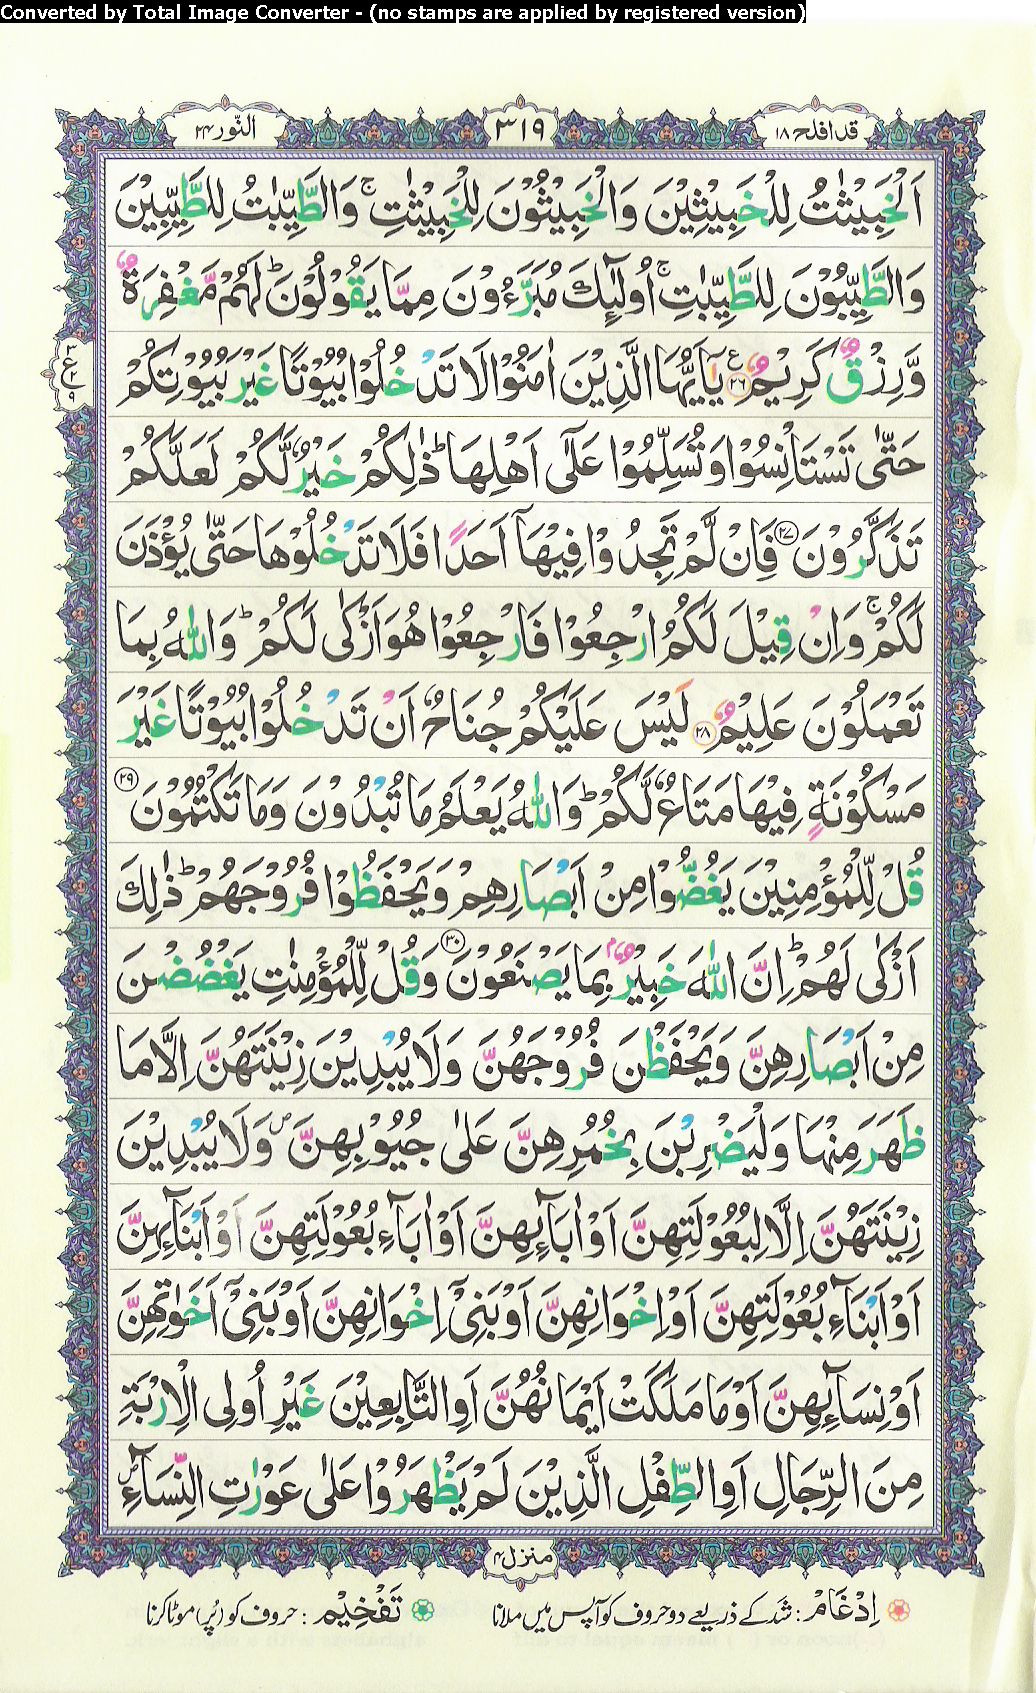 Converted by Total Image Converter - (no stamps are applied by registered version)
قد افلح ١٨
٣١٩
النّور ٢٤
اَلْخَبِيْثٰتُ لِلْخَبِيْثِيْنَ وَالْخَبِيْثُوْنَ لِلْخَبِيْثٰتِ ۚ وَالطَّيِّبٰتُ لِلطَّيِّبِيْنَ
وَالطَّيِّبُوْنَ لِلطَّيِّبٰتِ ۚ اُولٰٓئِكَ مُبَرَّءُوْنَ مِمَّا يَقُوْلُوْنَ ؕ لَهُمْ مَّغْفِرَةٌ
وَّرِزْقٌ كَرِيْمٌ ﴿٢٦﴾ ع يٰۤاَيُّهَا الَّذِيْنَ اٰمَنُوْا لَا تَدْخُلُوْا بُيُوْتًا غَيْرَ بُيُوْتِكُمْ
٣
ع ٢
٩
حَتّٰى تَسْتَاْنِسُوْا وَتُسَلِّمُوْا عَلٰٓى اَهْلِهَا ؕ ذٰلِكُمْ خَيْرٌ لَّكُمْ لَعَلَّكُمْ
تَذَكَّرُوْنَ ﴿٢٧﴾ فَاِنْ لَّمْ تَجِدُوْا فِيْهَاۤ اَحَدًا فَلَا تَدْخُلُوْهَا حَتّٰى يُؤْذَنَ
لَكُمْ ۚ وَاِنْ قِيْلَ لَكُمُ ارْجِعُوْا فَارْجِعُوْا هُوَ اَزْكٰى لَكُمْ ؕ وَاللّٰهُ بِمَا
تَعْمَلُوْنَ عَلِيْمٌ ﴿٢٨﴾ لَيْسَ عَلَيْكُمْ جُنَاحٌ اَنْ تَدْخُلُوْا بُيُوْتًا غَيْرَ
مَسْكُوْنَةٍ فِيْهَا مَتَاعٌ لَّكُمْ ؕ وَاللّٰهُ يَعْلَمُ مَا تُبْدُوْنَ وَمَا تَكْتُمُوْنَ ﴿٢٩﴾
قُلْ لِّلْمُؤْمِنِيْنَ يَغُضُّوْا مِنْ اَبْصَارِهِمْ وَيَحْفَظُوْا فُرُوْجَهُمْ ؕ ذٰلِكَ
اَزْكٰى لَهُمْ ؕ اِنَّ اللّٰهَ خَبِيْرٌۢ بِمَا يَصْنَعُوْنَ ﴿٣٠﴾ وَقُلْ لِّلْمُؤْمِنٰتِ يَغْضُضْنَ
مِنْ اَبْصَارِهِنَّ وَيَحْفَظْنَ فُرُوْجَهُنَّ وَلَا يُبْدِيْنَ زِيْنَتَهُنَّ اِلَّا مَا
ظَهَرَ مِنْهَا وَلْيَضْرِبْنَ بِخُمُرِهِنَّ عَلٰى جُيُوْبِهِنَّ ۪ وَلَا يُبْدِيْنَ
زِيْنَتَهُنَّ اِلَّا لِبُعُوْلَتِهِنَّ اَوْ اٰبَآئِهِنَّ اَوْ اٰبَآءِ بُعُوْلَتِهِنَّ اَوْ اَبْنَآئِهِنَّ
اَوْ اَبْنَآءِ بُعُوْلَتِهِنَّ اَوْ اِخْوَانِهِنَّ اَوْ بَنِيْۤ اِخْوَانِهِنَّ اَوْ بَنِيْۤ اَخَوٰتِهِنَّ
اَوْ نِسَآئِهِنَّ اَوْ مَا مَلَكَتْ اَيْمَانُهُنَّ اَوِ التّٰبِعِيْنَ غَيْرِ اُولِى الْاِرْبَةِ
مِنَ الرِّجَالِ اَوِ الطِّفْلِ الَّذِيْنَ لَمْ يَظْهَرُوْا عَلٰى عَوْرٰتِ النِّسَآءِ ۪
منزل ٤
اِدْغَامْ : شَد کے ذریعے دو حروف کو آپس میں ملانا
تَفْخِيْمْ : حروف کو (پُر) موٹا کرنا